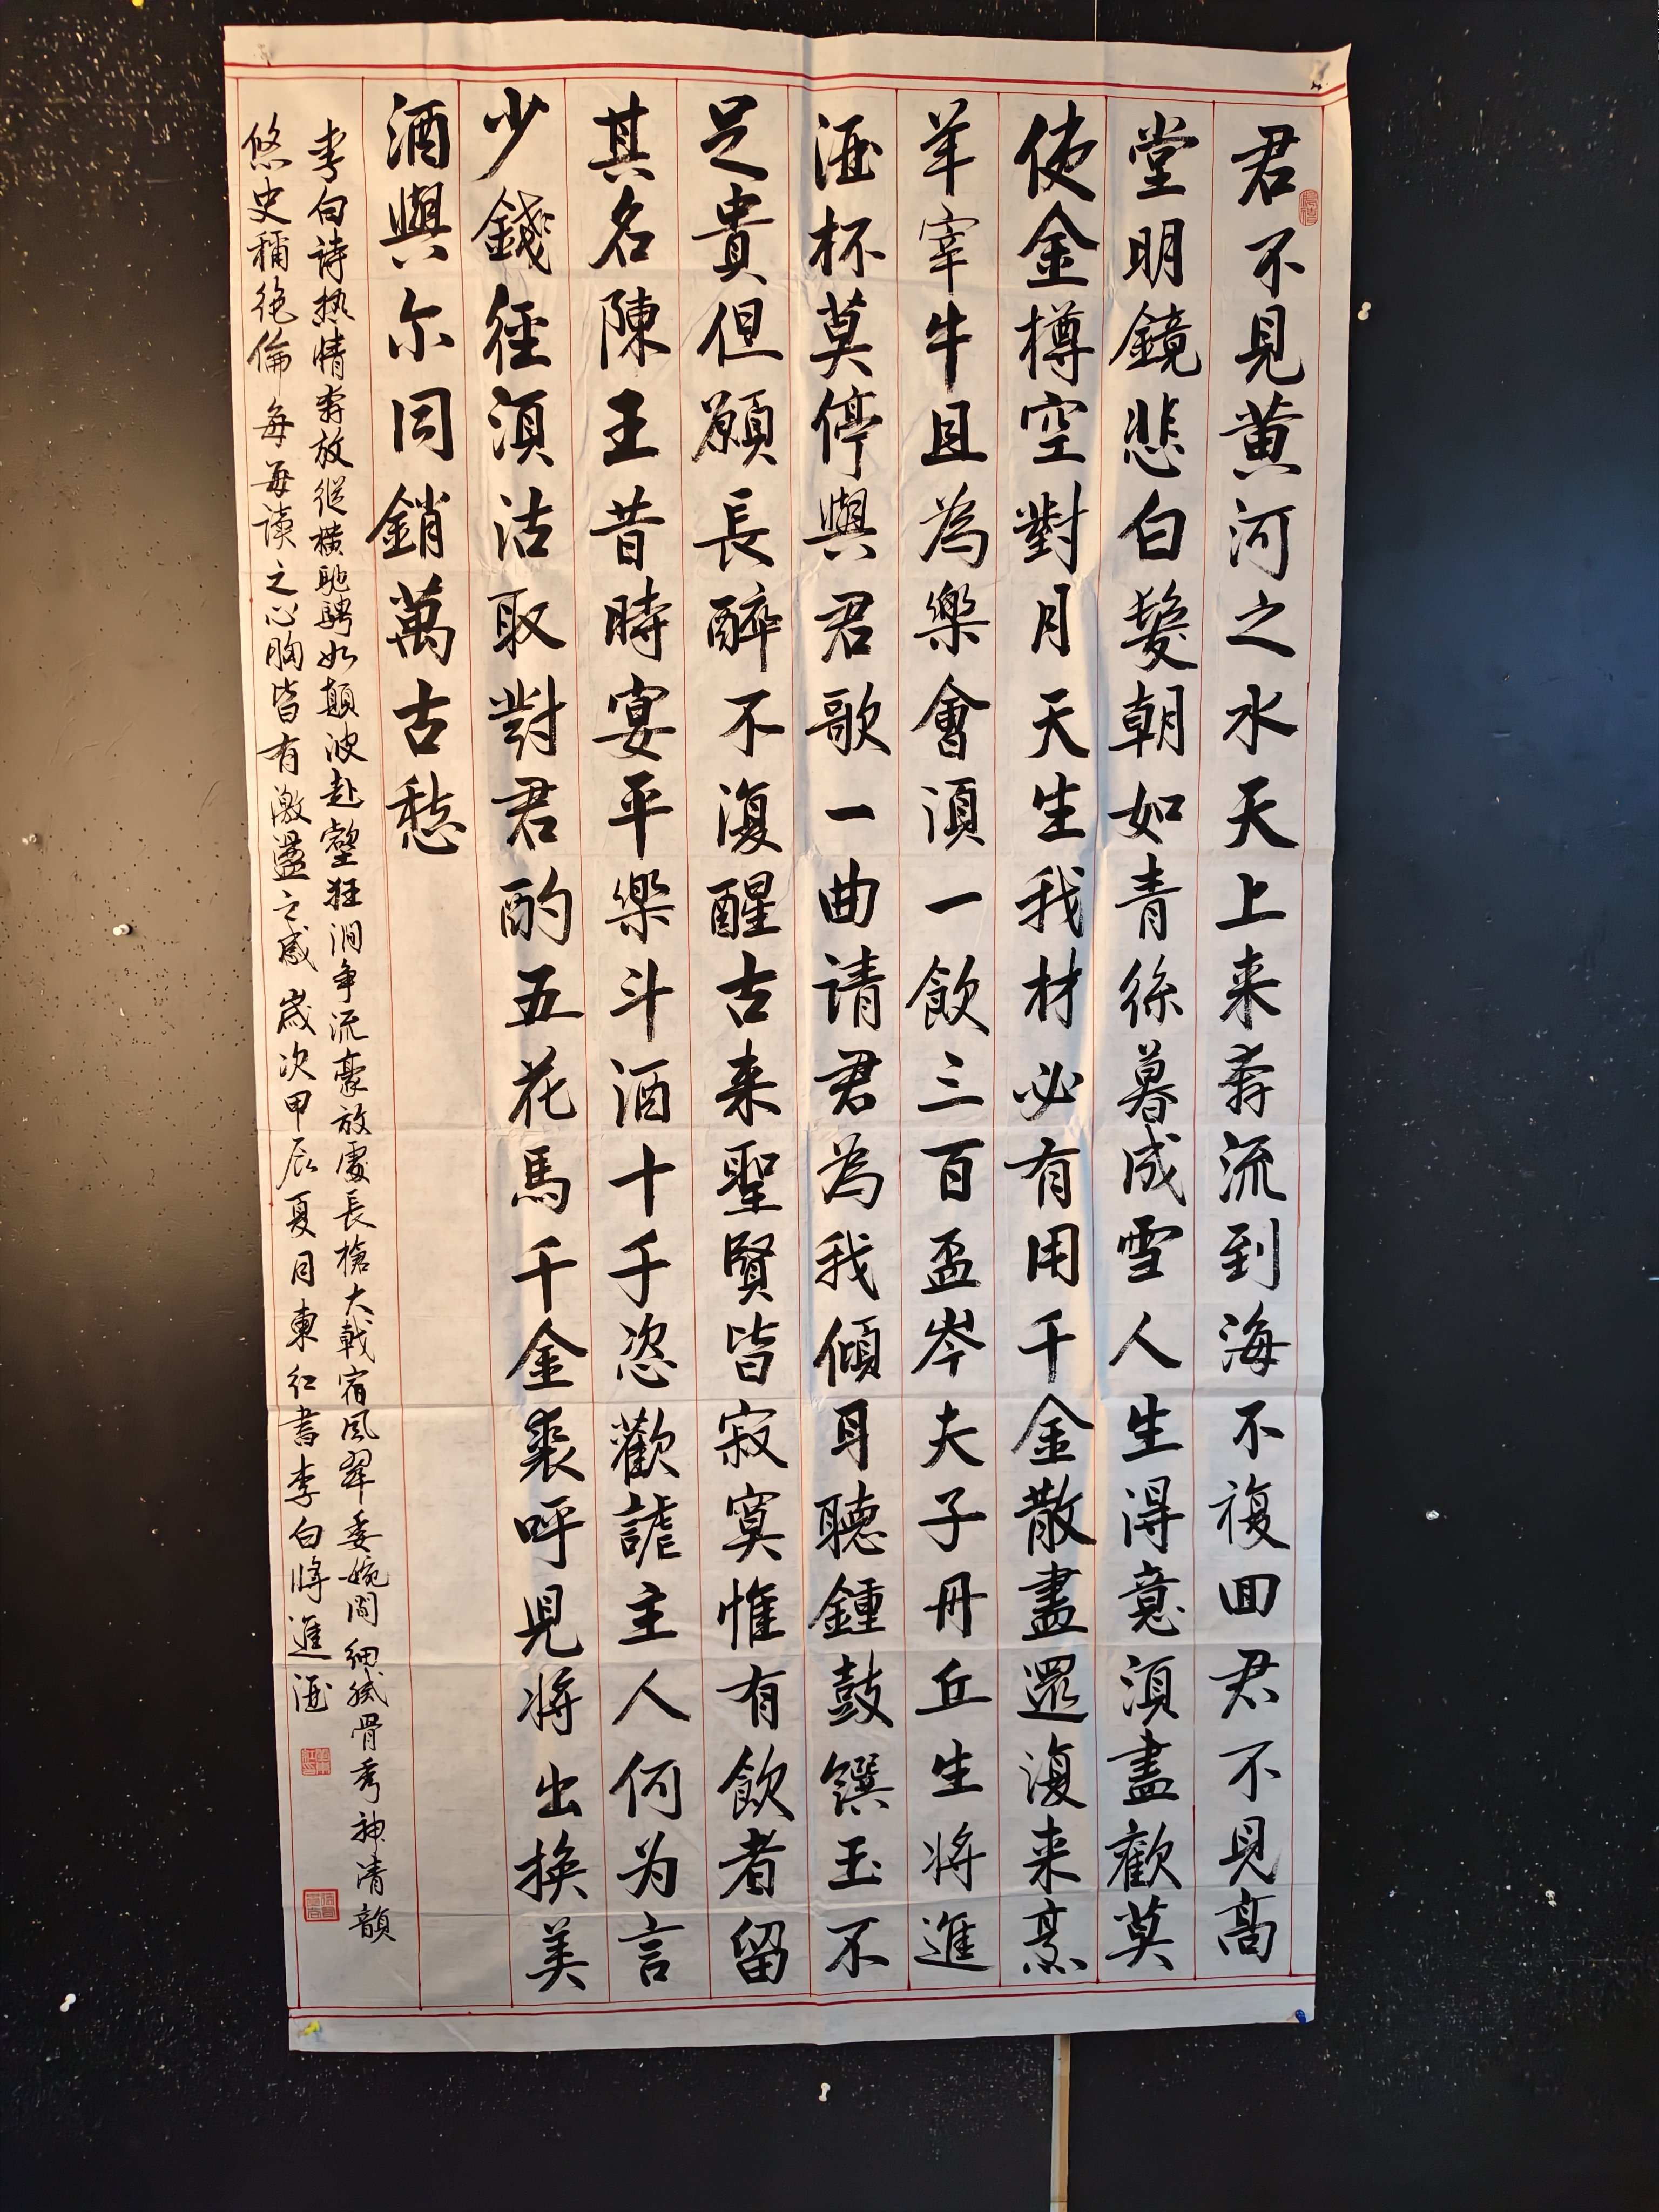 君不見黄河之水天上来奔流到海不複回君不見高
堂明鏡悲白髮朝如青絲暮成雪人生得意須盡歡莫
使金樽空對月天生我材必有用千金散盡還復来烹
羊宰牛且為樂會須一飲三百盃岑夫子丹丘生将進
酒杯莫停與君歌一曲请君為我傾耳聽鍾鼓馔玉不
足貴但願長醉不復醒古来聖賢皆寂寞惟有飲者留
其名陳王昔時宴平樂斗酒十千恣歡謔主人何为言
少錢徑須沽取對君酌五花馬千金裘呼児将出换美
酒與尔同銷萬古愁
李白诗热情奔放縱橫馳騁如顛波赴壑狂澗争流豪放處長槍大戟宿風翠委婉間細膩骨秀神清韻
悠史稱絶倫每每读之心胸皆有激盪之感歲次甲辰夏月東红書李白將進酒